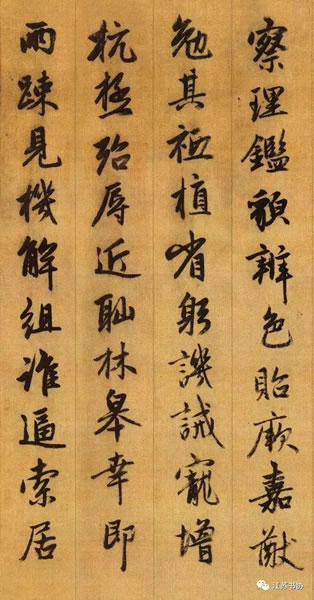 察理鑑貌辨色貽厥嘉猷
勉其祗植省躬譏誡寵增
抗極殆辱近耻林皋幸即
兩疎見機解組誰逼索居
江苏书协